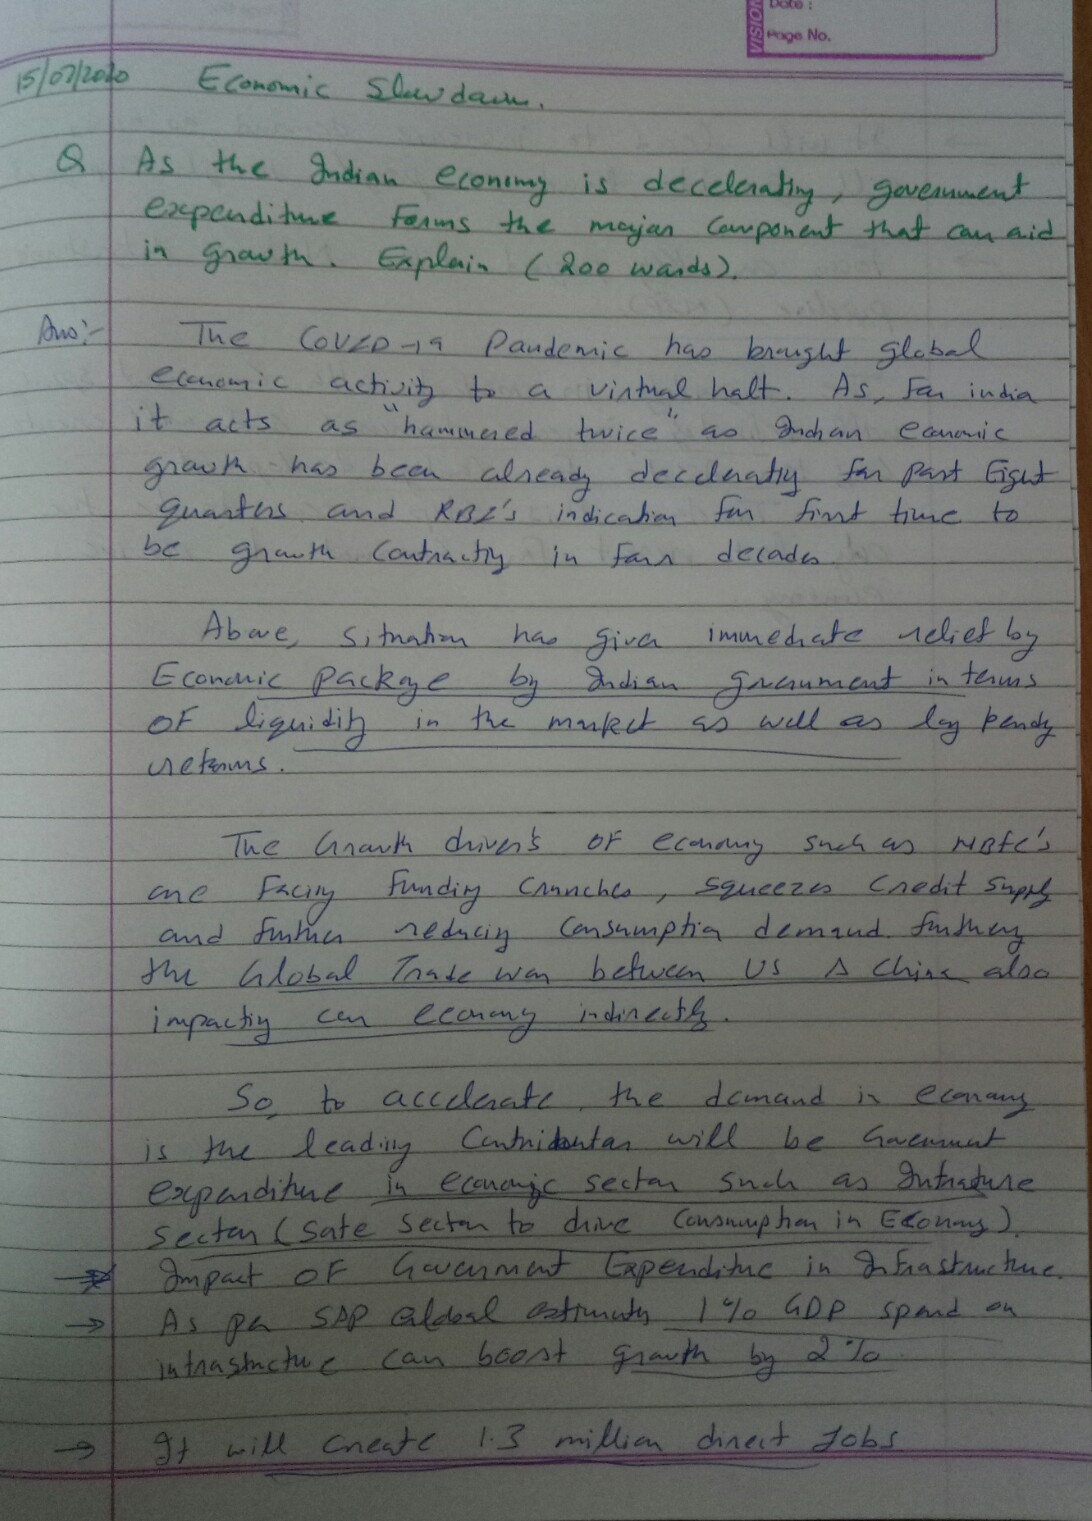 VISION
Date :
Page No.
15/07/2020 Economic Slowdown.
Q As the Indian economy is decelerating, government
expenditure forms the major component that can aid
in growth. Explain (200 words).
Ans:- The COVID-19 Pandemic has brought global
economic activity to a virtual halt. As, for india
it acts as "hammered twice" as Indian economic
growth has been already decelerating for past Eight
quarters and RBI's indication for first time to
be growth contracting in four decades
Above, situation has given immediate relief by
Economic package by Indian government in terms
OF liquidity in the market as well as long pending
reforms.
The Growth driver's OF economy such as NBFC's
are Facing Funding Crunches, squeezes Credit supply
and further reducing consumption demand. further
the Global Trade war between US & China also
impacting our economy indirectly.
So, to accelerate the demand in economy
is the leading Contributor will be Government
expenditure in economic sector such as
sector (Safe sector to drive consumption in Economy)
Impact OF Government Expenditure in Infrastructure.
→ As per S&P Global estimates 1% GDP spend on
infrastructure can boost growth by 2%
→ It will create 1.3 million direct Jobs